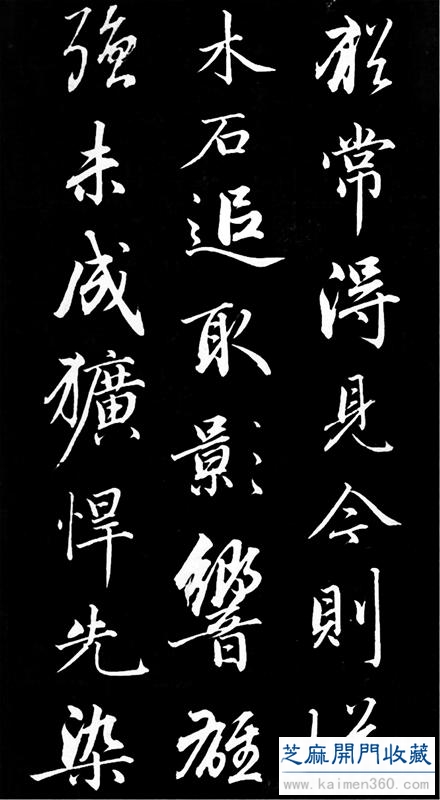 猶常得見今則
木石追取影響雄
強未成獷悍先染
芝麻開門收藏
www.kaimen360.com